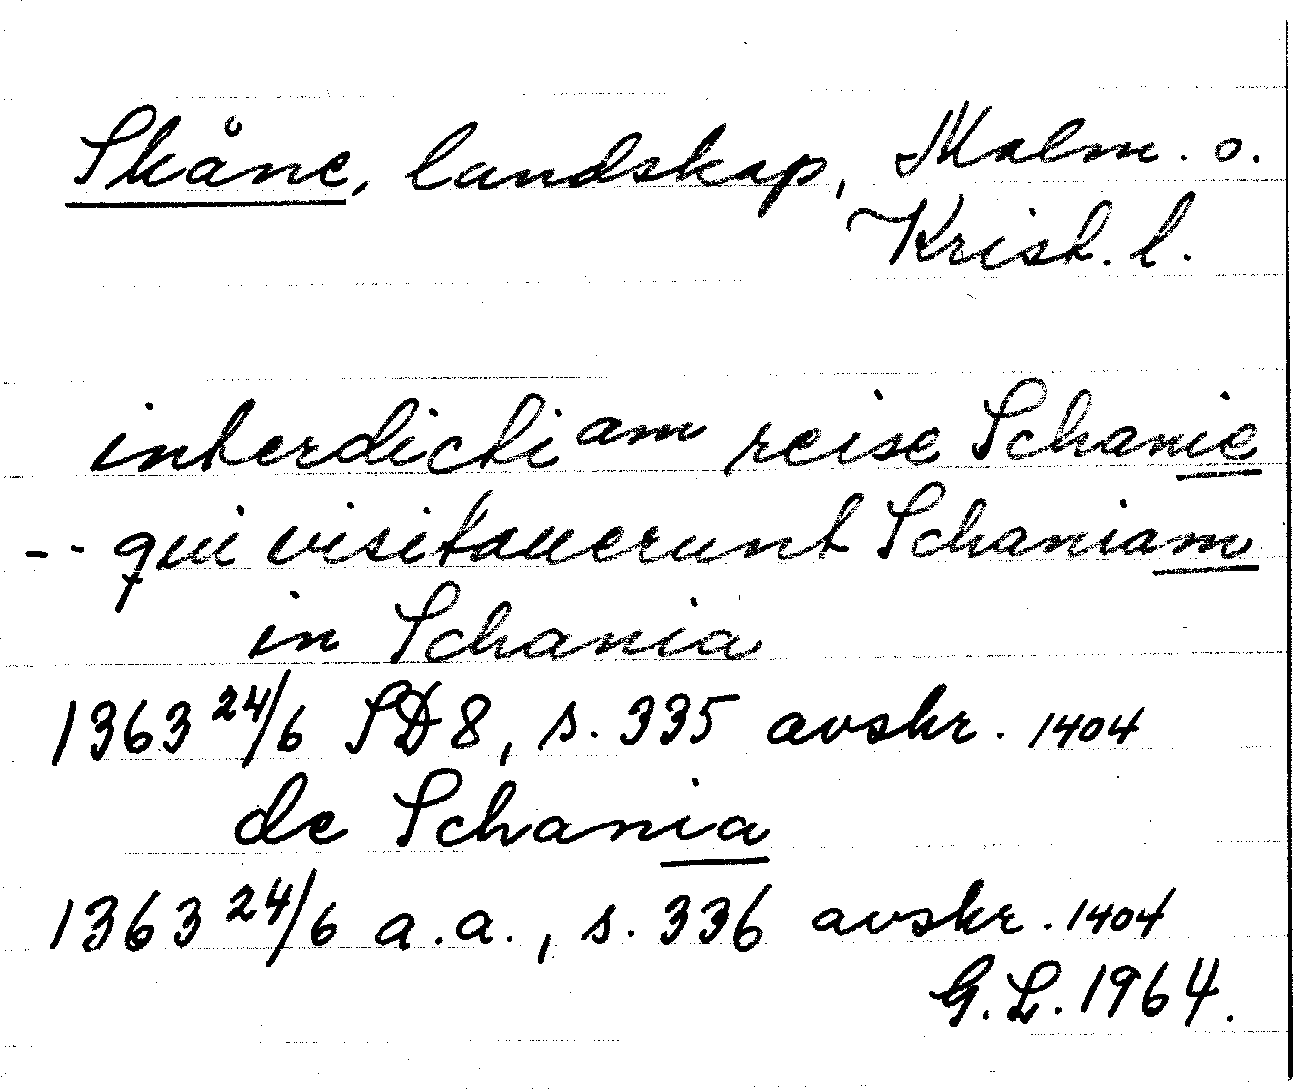 Skåne, landskap, Malm. o.
Krist. l.
interdicti am reise Schanie
-- qui visitauerunt Schaniam
in Schania
1363 24/6 SD 8, s. 335 avskr. 1404
de Schania
1363 24/6 a.a., s. 336 avskr. 1404
G.L. 1964.